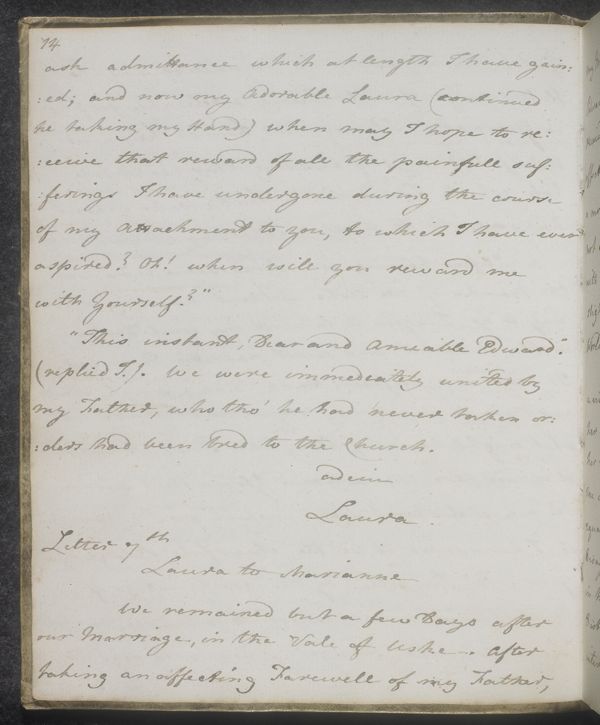 14
ask admittance which at length I have gain:
:ed; and now my Adorable Laura (continued
he taking my Hand) when may I hope to re:
:ceive that reward of all the painfull suf:
:ferings I have undergone during the course
of my attachment to you, to which I have ever
aspired? Oh! when will you reward me
with Yourself?"
"This instant, Dear and Amiable Edward".
(replied I.). We were immediately united by
my Father, who tho' he had never taken or:
:ders had been bred to the Church.
adeiu
Laura.
Letter 7th
Laura to Marianne
We remained but a few Days after
our Marriage, in the Vale of Uske. After
taking an affecting Farewell of my Father,